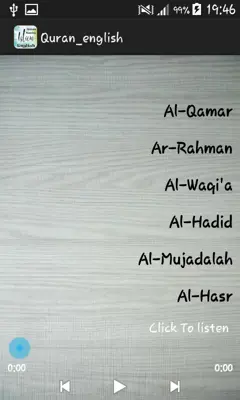 99% 19:46
Quran_english
Al-Qamar
Ar-Rahman
Al-Waqi'a
Al-Hadid
Al-Mujadalah
Al-Hasr
Click To listen
0:00 0:00